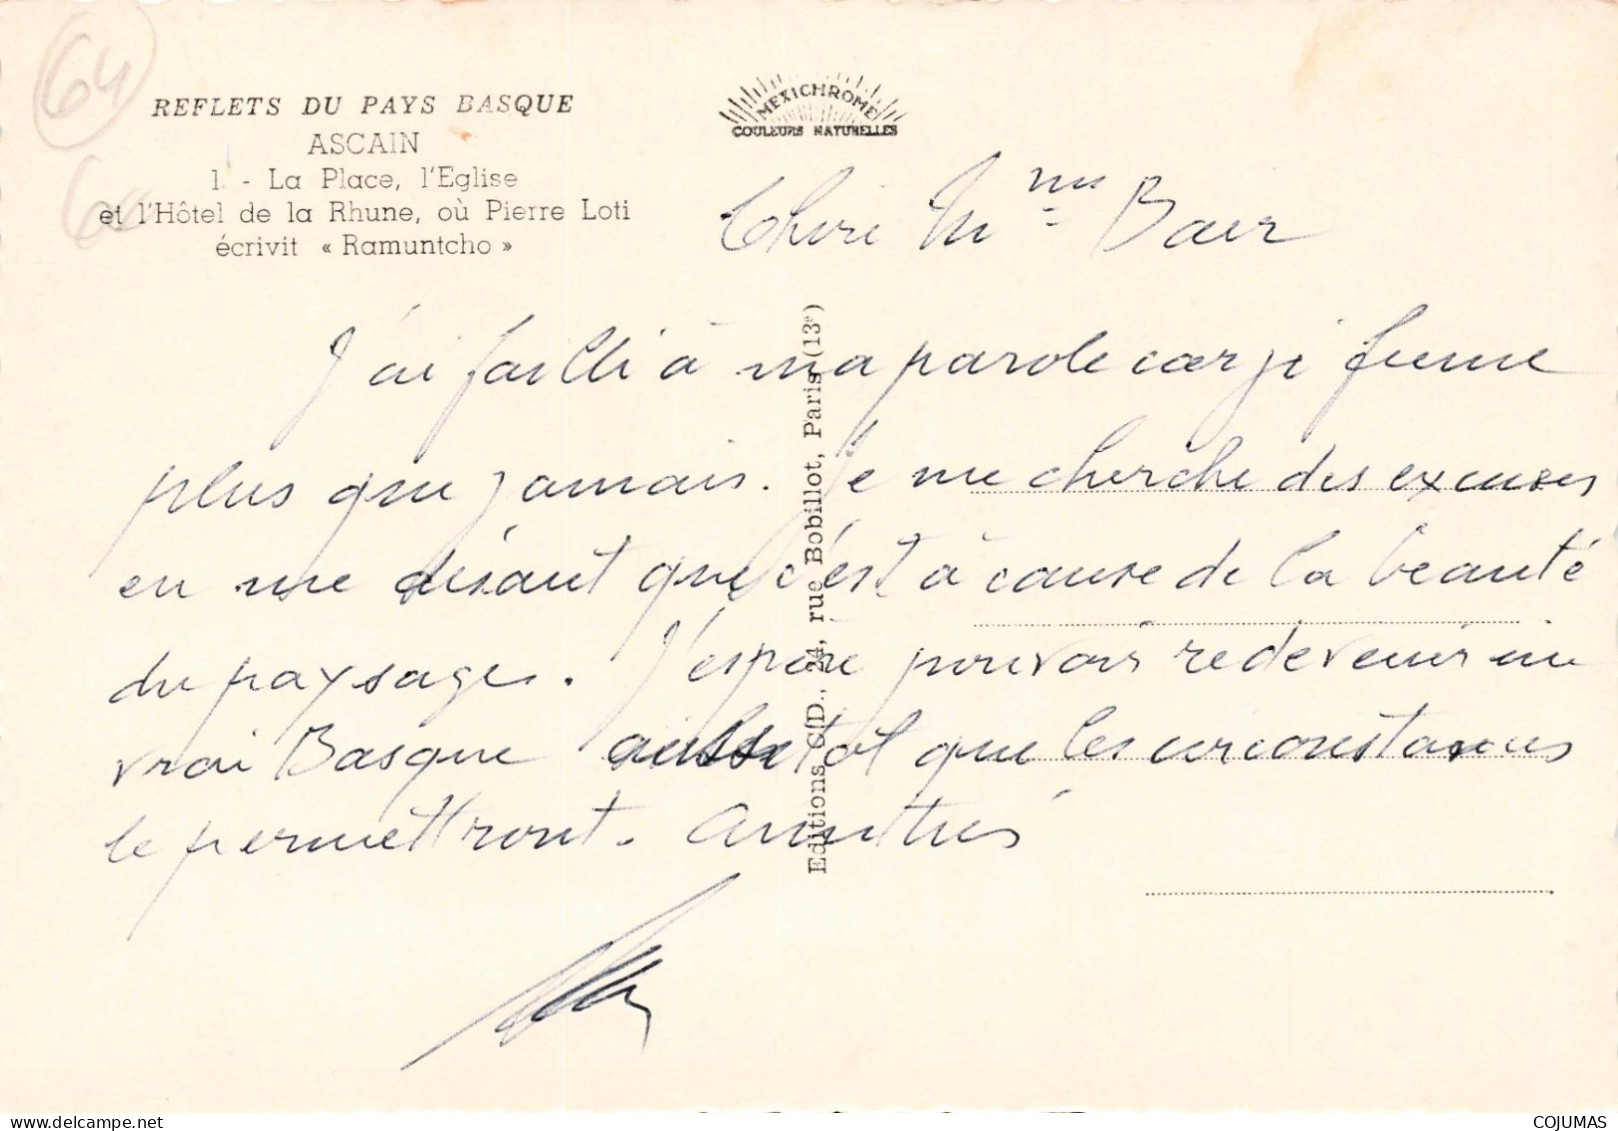 64
REFLETS DU PAYS BASQUE
ASCAIN
1. - La Place, l'Eglise
et l'Hôtel de la Rhune, où Pierre Loti
écrivit « Ramuntcho »
MEXICHROME
COULEURS NATURELLES
Chère Mme Baer
J'ai failli à ma parole car je fume
plus que jamais. Je me cherche des excuses
en me disant que c'est à cause de la beauté
du paysage. J'espère pouvoir redevenir un
vrai Basque aussitôt que les circonstances
le permettront. Amitiés
Editions C.D., 24, rue Bobillot, Paris (13e)
COJUMAS